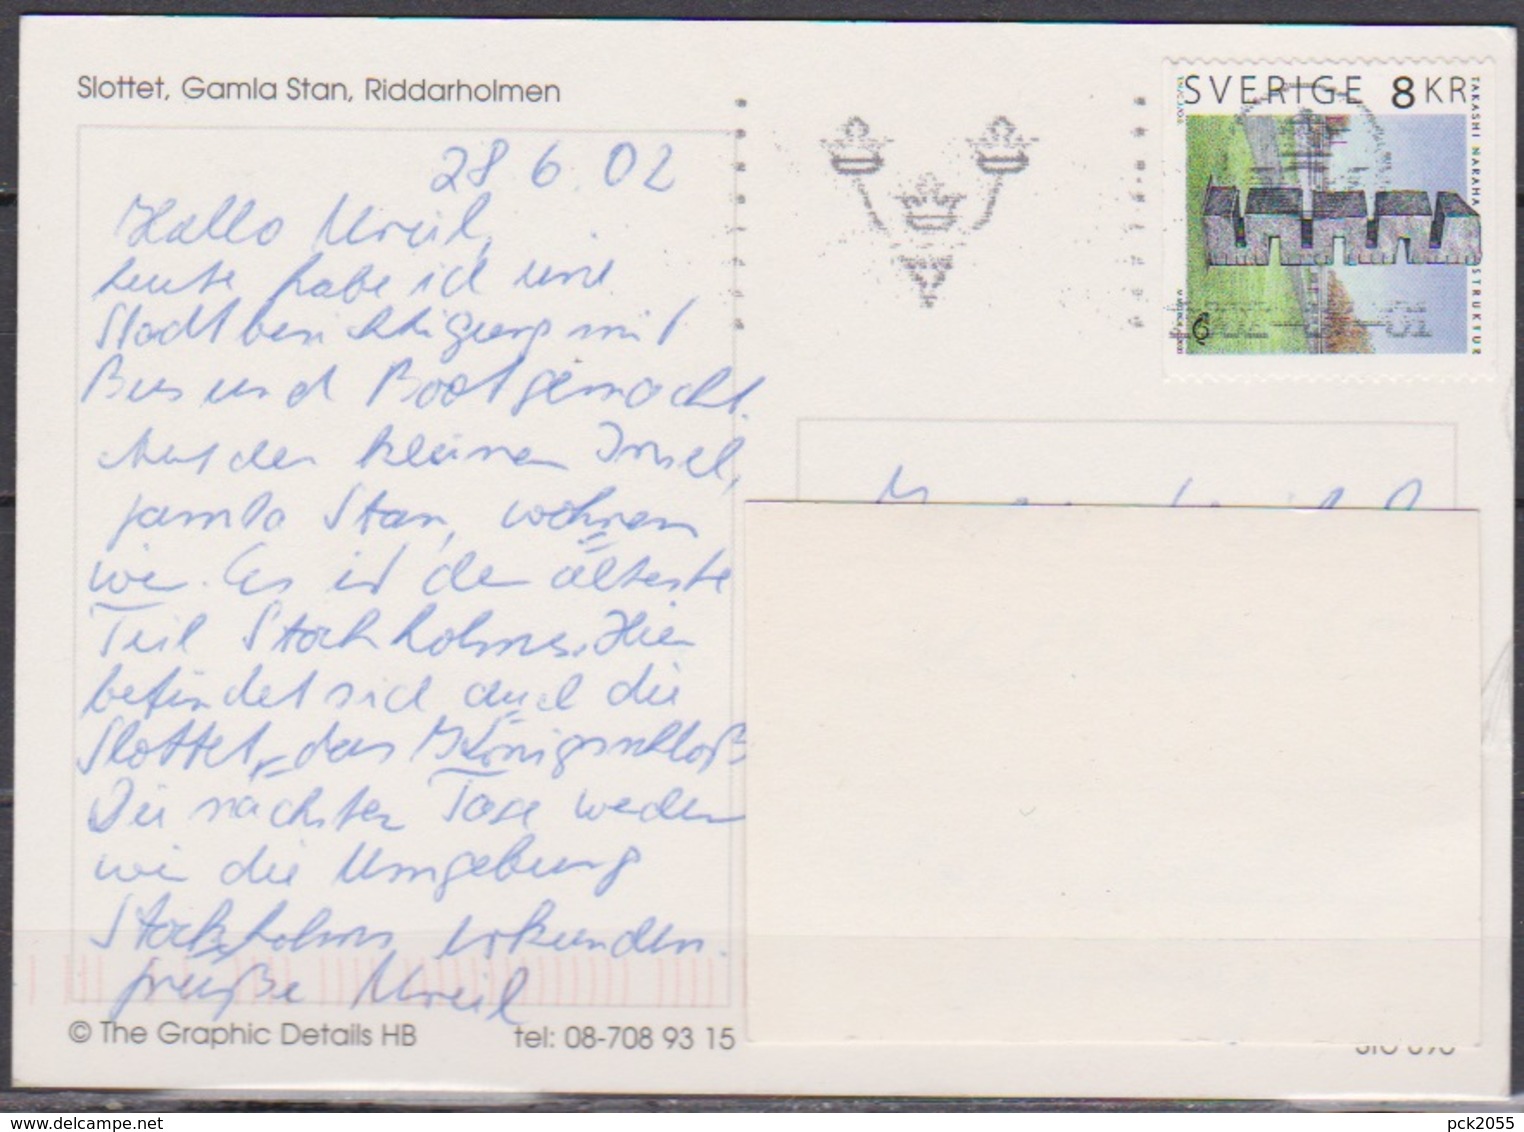 Slottet, Gamla Stan, Riddarholmen
28 6. 02
Hallo Ursel,
heute habe ich eine
Stadtbesichtigung mit
Bus und Boot gemacht.
Auf der kleinen Insel,
gamla Stan, wohnen
wir. Es ist der älteste
Teil Stockholms. Hier
befindet sich auch die
Slottet, das Königsschloß
Die nächsten Tage werden
wir die Umgebung
Stockholms erkunden.
Grüße Ursel
© The Graphic Details HB tel: 08-708 93 15
SVERIGE 8 KR
TAKASHI NARAHA STRUKTUR
6
pck2055